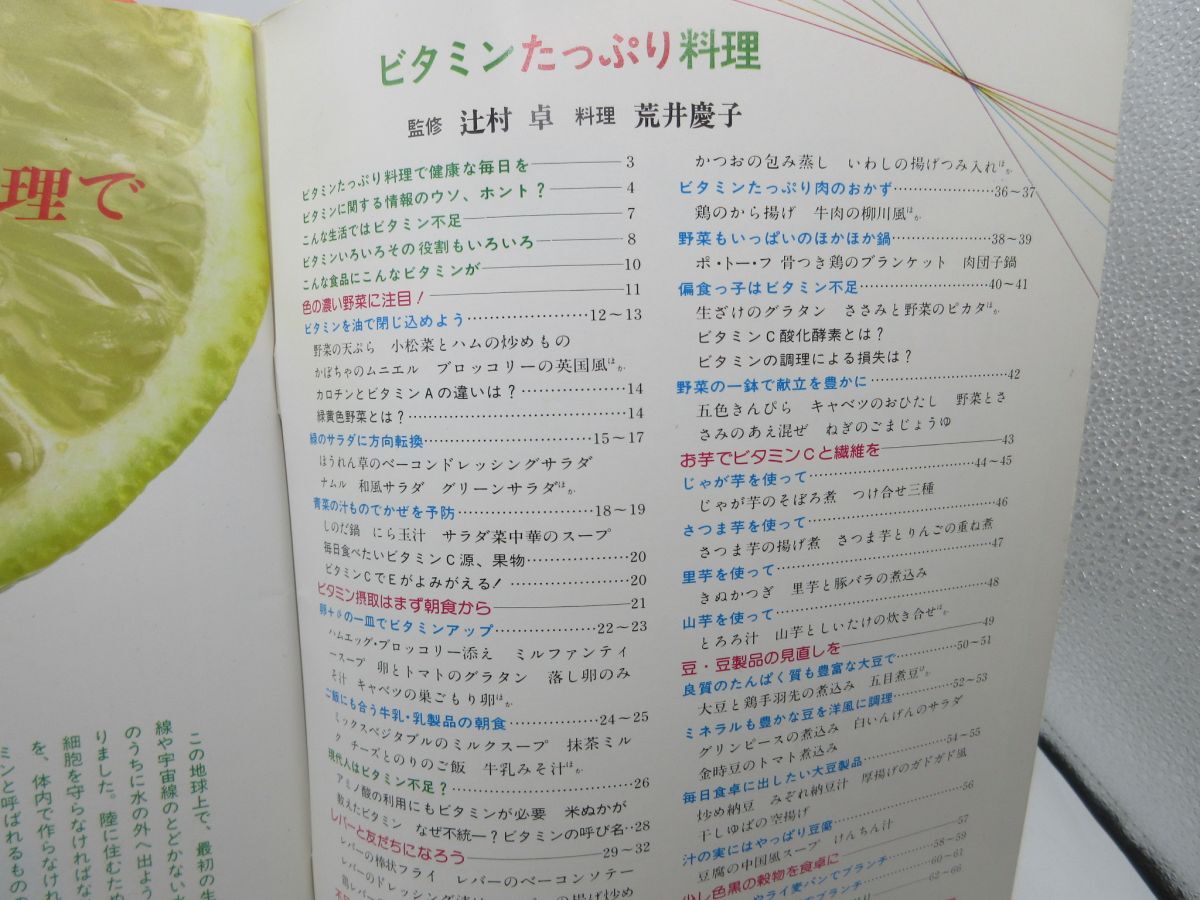 理で
この地球上で、最初の生
線や宇宙線のとどかない
のうちに水の外へ出よう
りました。陸に住むため
細胞を守らなければな
を、体内で作らなけれ
ミンと呼ばれるもの
ビタミンたっぷり料理
監修 辻村 卓 料理 荒井慶子
ビタミンたっぷり料理で健康な毎日を 3
ビタミンに関する情報のウソ、ホント? 4
こんな生活ではビタミン不足 7
ビタミンいろいろその役割もいろいろ 8
こんな食品にこんなビタミンが 10
色の濃い野菜に注目! 11
ビタミンを油で閉じ込めよう 12〜13
野菜の天ぷら 小松菜とハムの炒めもの
かぼちゃのムニエル ブロッコリーの英国風ほか
カロチンとビタミンAの違いは? 14
緑黄色野菜とは? 14
緑のサラダに方向転換 15〜17
ほうれん草のベーコンドレッシングサラダ
ナムル 和風サラダ グリーンサラダほか
青菜の汁ものでかぜを予防 18〜19
しのだ鍋 にら玉汁 サラダ菜中華のスープ
毎日食べたいビタミンC源、果物 20
ビタミンCでEがよみがえる! 20
ビタミン摂取はまず朝食から 21
卵+αの一皿でビタミンアップ 22〜23
ハムエッグ・ブロッコリー添え ミルファンティ
ースープ 卵とトマトのグラタン 落し卵のみ
そ汁 キャベツの巣ごもり卵ほか
ご飯にも合う牛乳・乳製品の朝食 24〜25
ミックスベジタブルのミルクスープ 抹茶ミル
ク チーズとのりのご飯 牛乳みそ汁ほか
現代人はビタミン不足? 26
アミノ酸の利用にもビタミンが必要 米ぬかが
教えたビタミン なぜ不統一?ビタミンの呼び名 28
レバーと友だちになろう 29〜32
レバーの棒状フライ レバーのベーコンソテー
レバーのドレッシング漬け
かつおの包み蒸し いわしの揚げつみ入れほか
ビタミンたっぷり肉のおかず 36〜37
鶏のから揚げ 牛肉の柳川風ほか
野菜もいっぱいのほかほか鍋 38〜39
ポ・トー・フ 骨つき鶏のブランケット 肉団子鍋
偏食っ子はビタミン不足 40〜41
生ざけのグラタン ささみと野菜のピカタほか
ビタミンC酸化酵素とは?
ビタミンの調理による損失は?
野菜の一鉢で献立を豊かに 42
五色きんぴら キャベツのおひたし 野菜とさ
さみのあえ混ぜ ねぎのごまじょうゆ
お芋でビタミンCと繊維を 43
じゃが芋を使って 44〜45
じゃが芋のそぼろ煮 つけ合せ三種
さつま芋を使って 46
さつま芋の揚げ煮 さつま芋とりんごの重ね煮
里芋を使って 47
きぬかつぎ 里芋と豚バラの煮込み
山芋を使って 48
とろろ汁 山芋としいたけの炊き合せほか
豆・豆製品の見直しを 49
良質のたんぱく質も豊富な大豆で 50〜51
大豆と鶏手羽先の煮込み 五目煮豆ほか
ミネラルも豊かな豆を洋風に調理 52〜53
グリンピースの煮込み 白いんげんのサラダ
金時豆のトマト煮込み
毎日食卓に出したい大豆製品 54〜55
炒め納豆 みぞれ納豆汁 厚揚げのガドガド風
干しゆばの空揚げ
汁の実にはやっぱり豆腐 56
豆腐の中国風スープ けんちん汁
少し色黒の穀物を食卓に 57
ライ麦パンでブランチ 58〜59
でブランチ 60〜61
62〜66